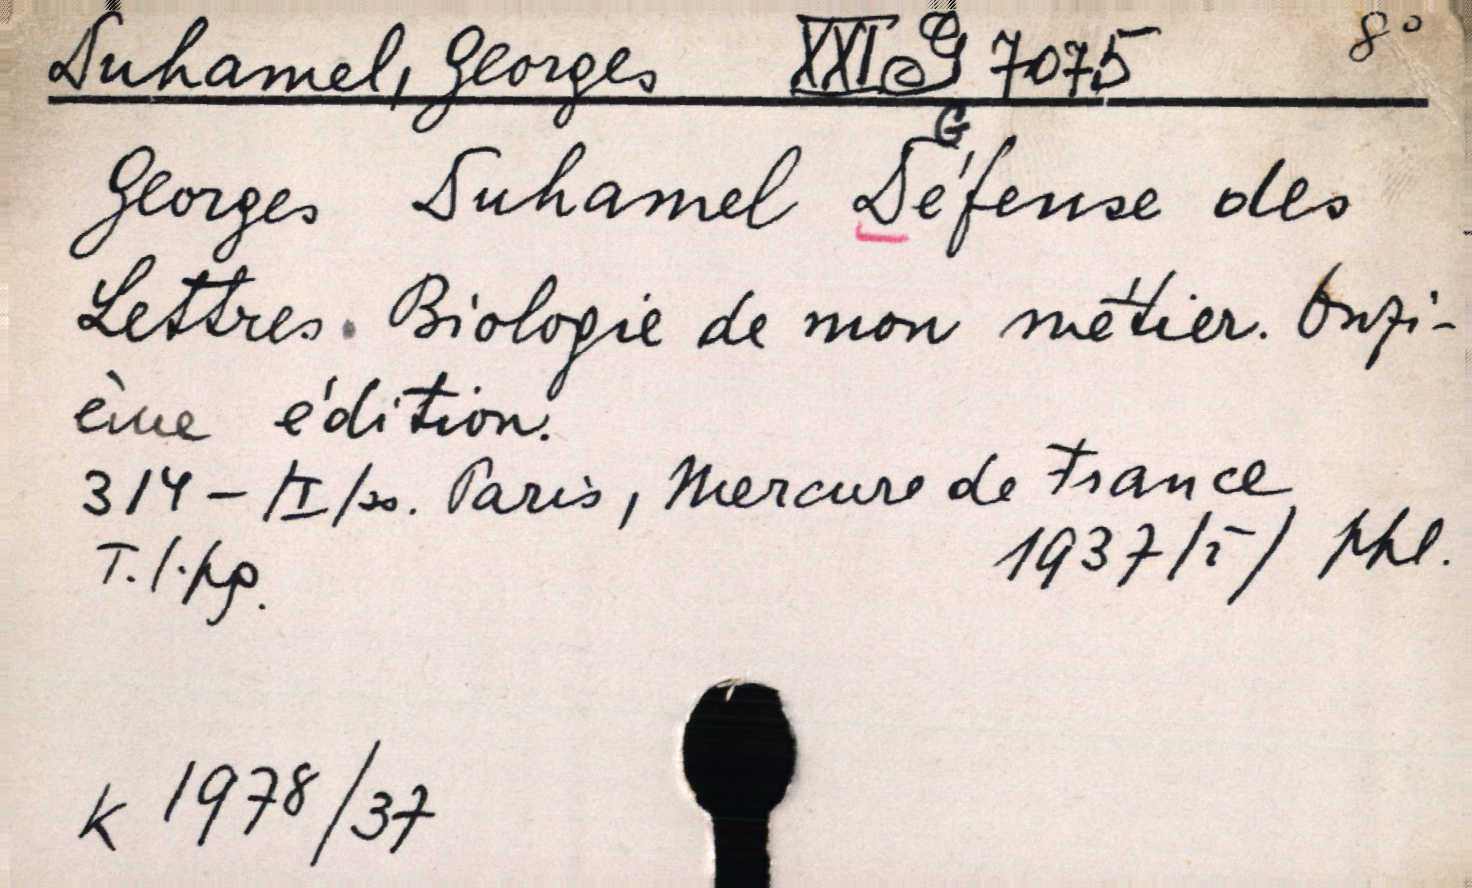 Duhamel, Georges XXI G 7075 8°
G
Georges Duhamel Défense des
Lettres. Biologie de mon métier. Onzi-
ème édition.
314 - /I/ Paris, Mercure de France
T. l. pg. 1937 /I/ phl.
K 1978/37